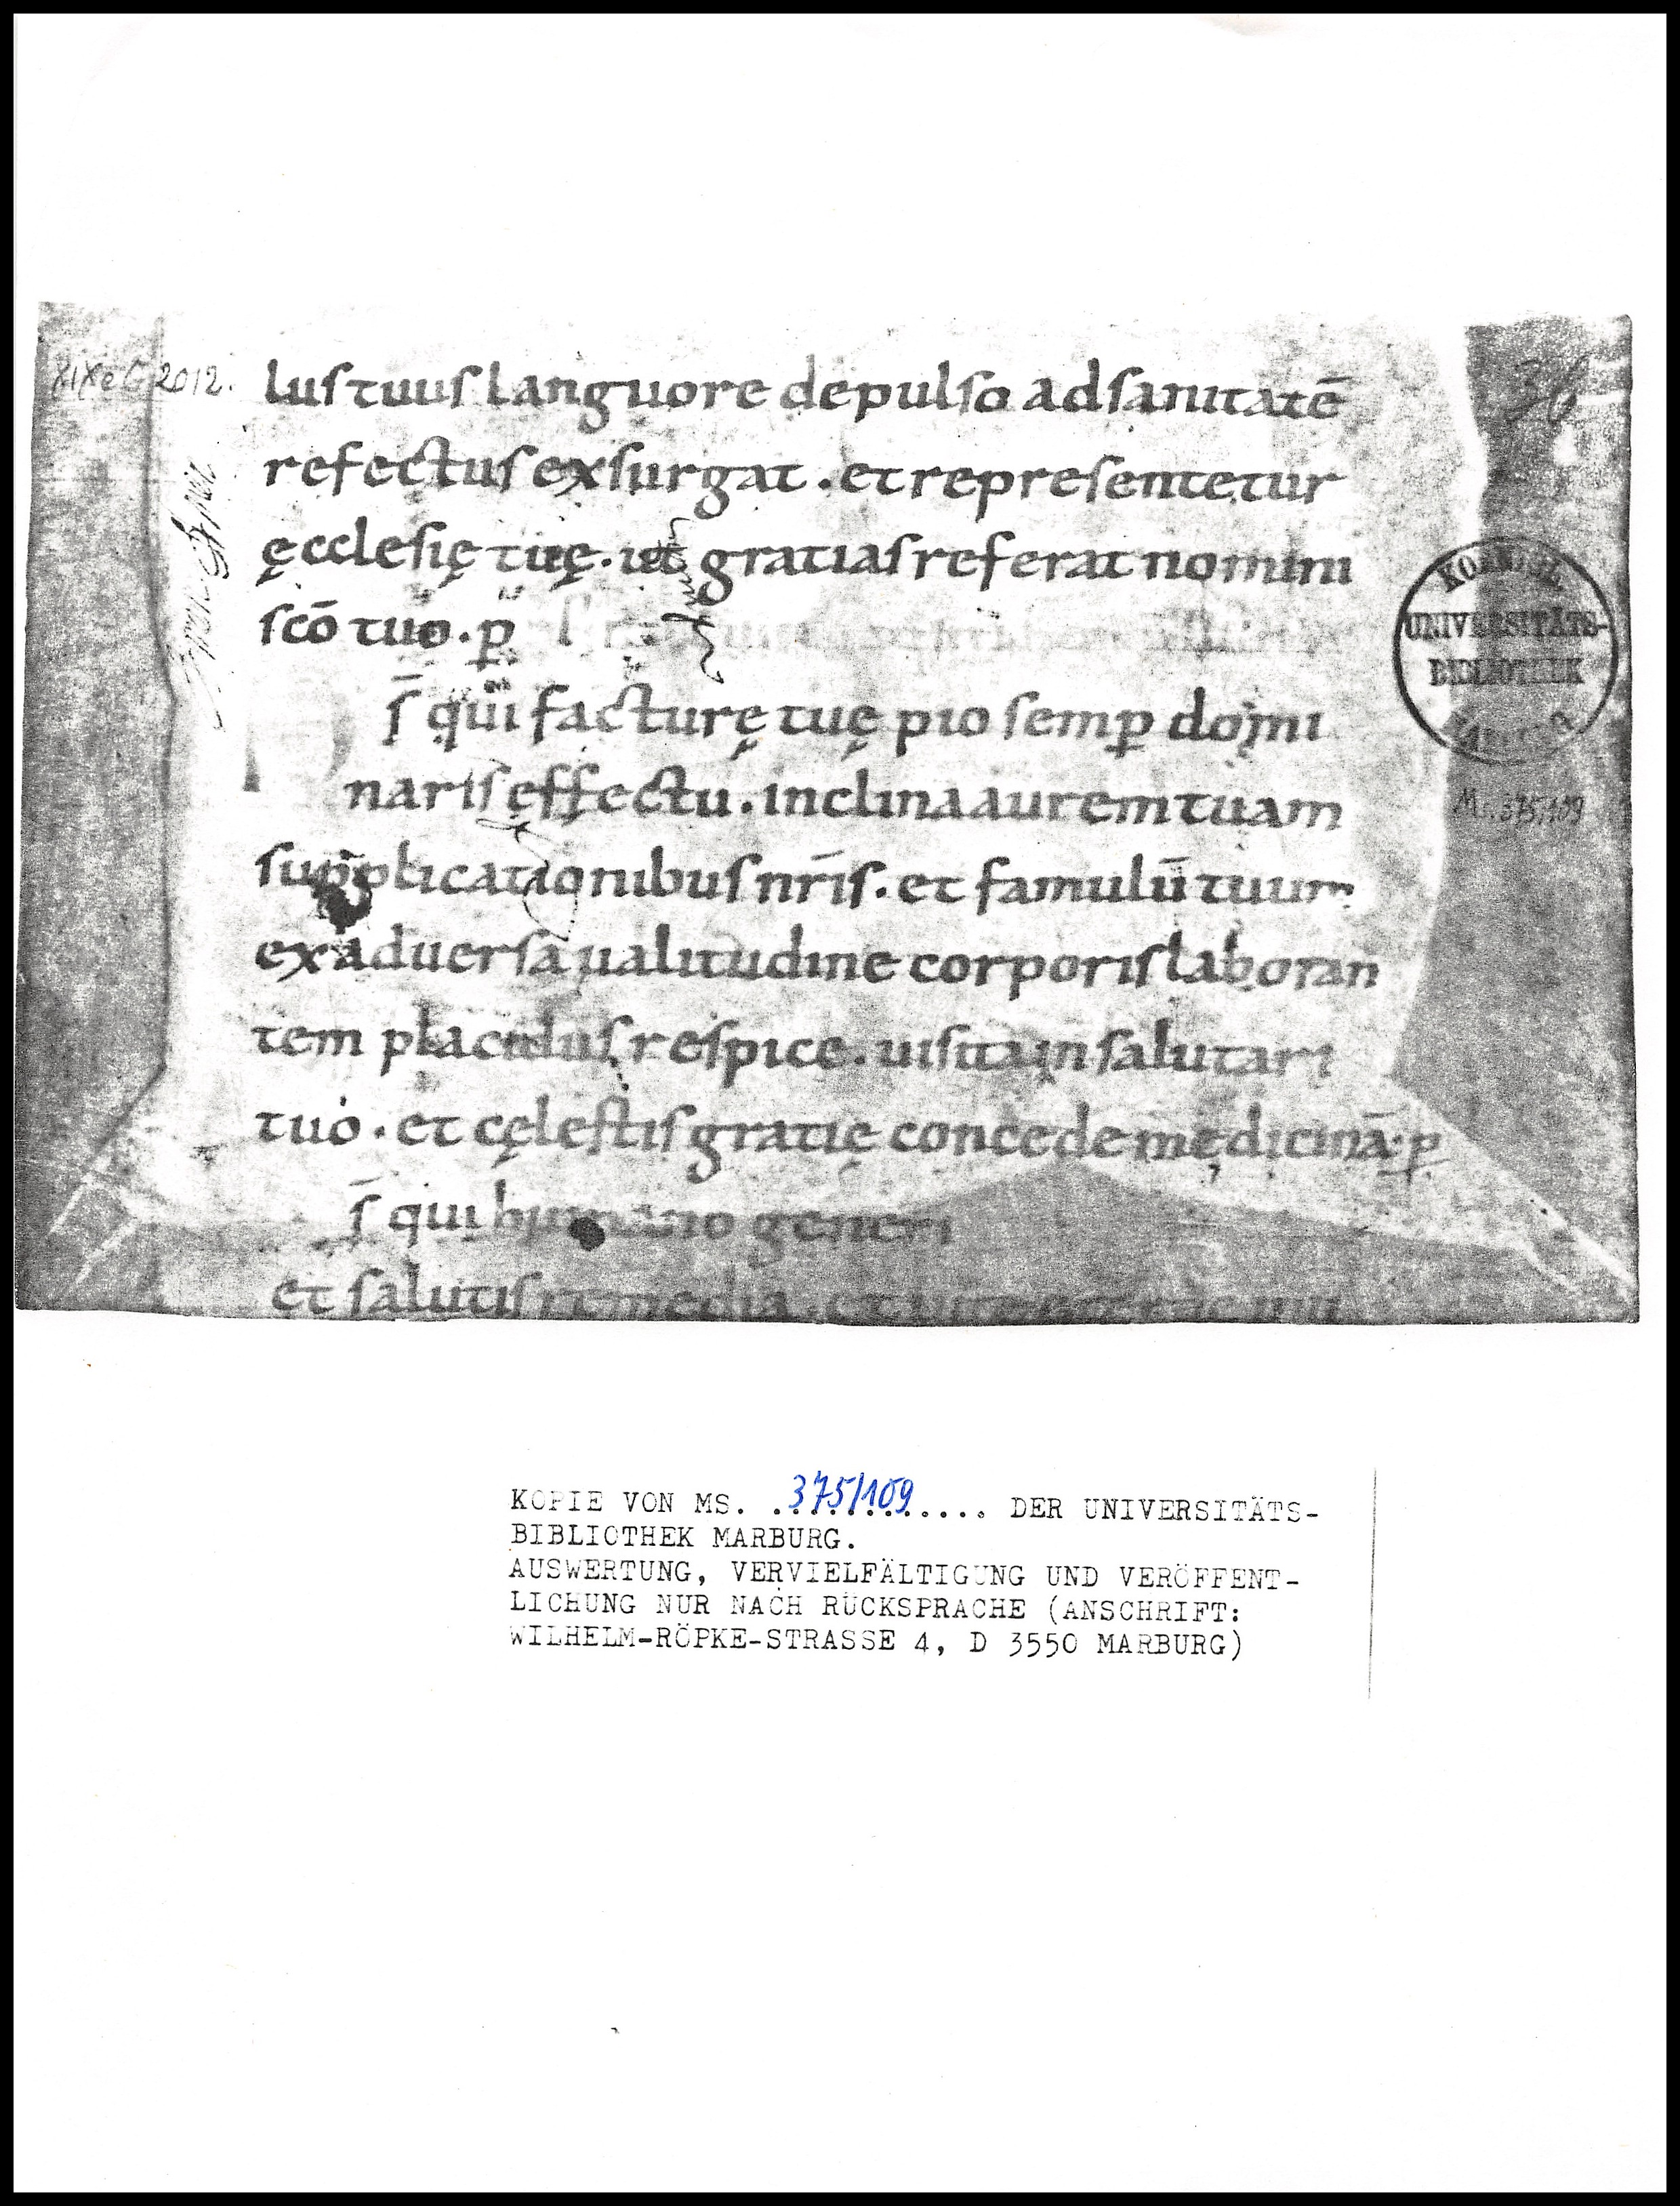 XIX e C 2012.
lus tuus languore depulso ad sanitatē
refectus exsurgat . et representetur
ęcclesię tuę . ut gratias referat nomini
scō tuo . p̱
s̄ qui facturę tuę pio semp̱ domi
naris effectu . inclina aurem tuam
supplicationibus nr̄is . et famulū tuum
ex aduersa ualitudine corporis laboran
tem placidus respice . uisita in salutari
tuo . et cęlestis gratię concede medicinā . p̱
s̄ qui humano generi
et salutis remedia
36
KOENIGL.
UNIVERSITÄTS-
BIBLIOTHEK
Ms. 375,109
KOPIE VON MS. .375/109..... DER UNIVERSITÄTS-
BIBLIOTHEK MARBURG.
AUSWERTUNG, VERVIELFÄLTIGUNG UND VERÖFFENT-
LICHUNG NUR NACH RÜCKSPRACHE (ANSCHRIFT:
WILHELM-RÖPKE-STRASSE 4, D 3550 MARBURG)